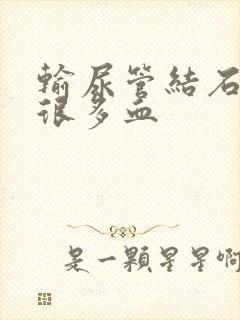 輸尿管結石
很多血
是一顆星星啊